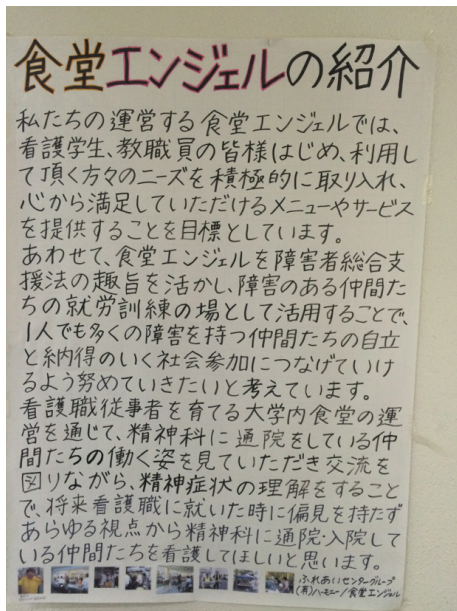 食堂エンジェルの紹介
私たちの運営する食堂エンジェルでは、
看護学生、教職員の皆様はじめ、利用し
て頂く方々のニーズを積極的に取り入れ、
心から満足していただけるメニューやサービス
を提供することを目標としています。
あわせて、食堂エンジェルを障害者総合支
援法の趣旨を活かし、障害のある仲間た
ちの就労訓練の場として活用することで、
1人でも多くの障害を持つ仲間たちの自立
と納得のいく社会参加につなげていけ
るよう努めていきたいと考えています。
看護職従事者を育てる大学内食堂の運
営を通じて、精神科に通院をしている仲
間たちの働く姿を見ていただき交流を
図りながら、精神症状の理解をすること
で、将来看護職に就いた時に偏見を持たず
あらゆる視点から精神科に通院・入院して
いる仲間たちを看護してほしいと思います。
ふれあいセンターグループ
(有)ハーモニー/食堂エンジェル